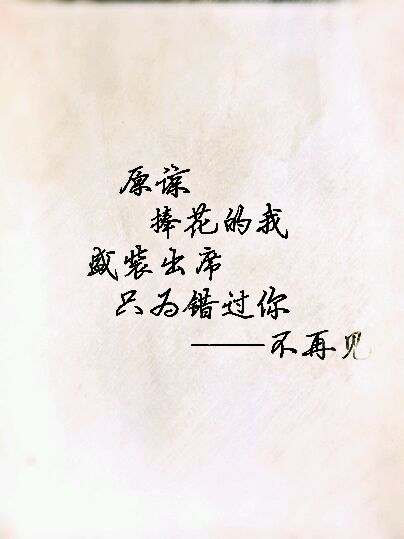 原谅
捧花的我
盛装出席
只为错过你
——不再见